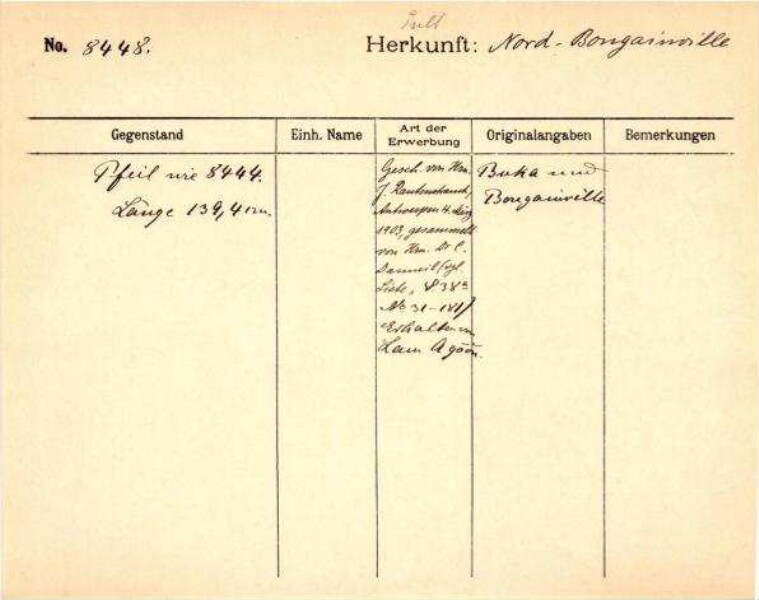 No. 8448.
Herkunft: Nord-Bougainville
Gegenstand
Einh. Name
Art der
Erwerbung
Originalangaben
Bemerkungen
Pfeil wie 8444.
Länge 139,4 cm.
Gesch. von Hrn.
J. Rautenstrauch,
Antwerpen 4. März
1903, gesammelt
von Hrn. Dr C.
Danneil (vgl.
Liste, 838a
No 31-181)
Erhalten von
Lam
Buka und
Bougainville